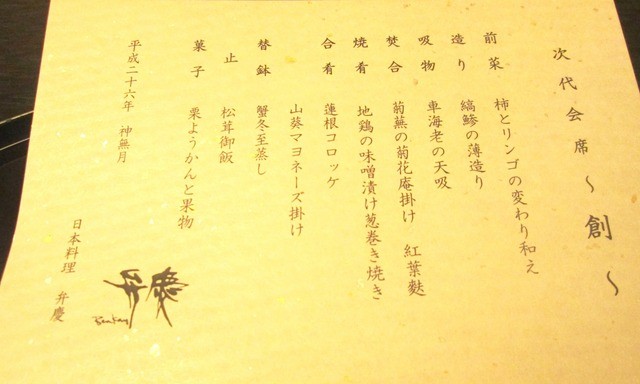 次代会席〜創〜
前菜　柿とリンゴの変わり和え
造り　縞鯵の薄造り
吸物　車海老の天吸
焚合　蕪の菊花庵掛け　紅葉麩
焼肴　地鶏の味噌漬け葱巻き焼き
合肴　蓮根コロッケ
山葵マヨネーズ掛け
替鉢　蟹冬至蒸し
止　松茸御飯
菓子　栗ようかんと果物
平成二十六年　神無月
日本料理　弁慶
弁慶
Benkey